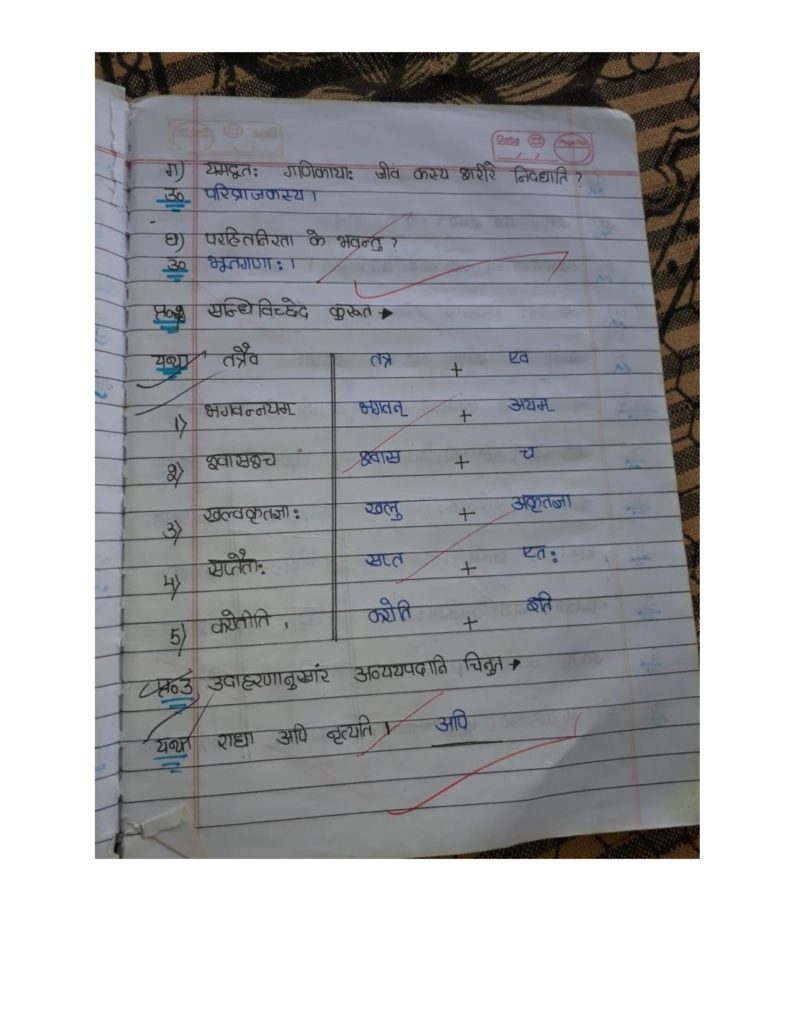 Date
ग) यमदूतः गणिकायाः जीवं कस्य शरीरे निदधाति ?
उ० परिव्राजकस्य ।
घ) परहितनिरता के भवन्तु ?
उ० भूतगणाः ।
प्र०२ सन्धिविच्छेदं कुरूत →
यथा तत्रैव तत्र + एव
1) भगवन्नयम् भगवन् + अयम्
2) श्वासश्च श्वास + च
3) खल्वकृतज्ञाः खलु + अकृतज्ञा
4) सप्तैताः सप्त + एतः
5) करोतीति , करोति + इति
प्र०3 उदाहरणानुसारं अव्ययपदानि चिनुत →
यथा राधा अपि नृत्यति । अपि